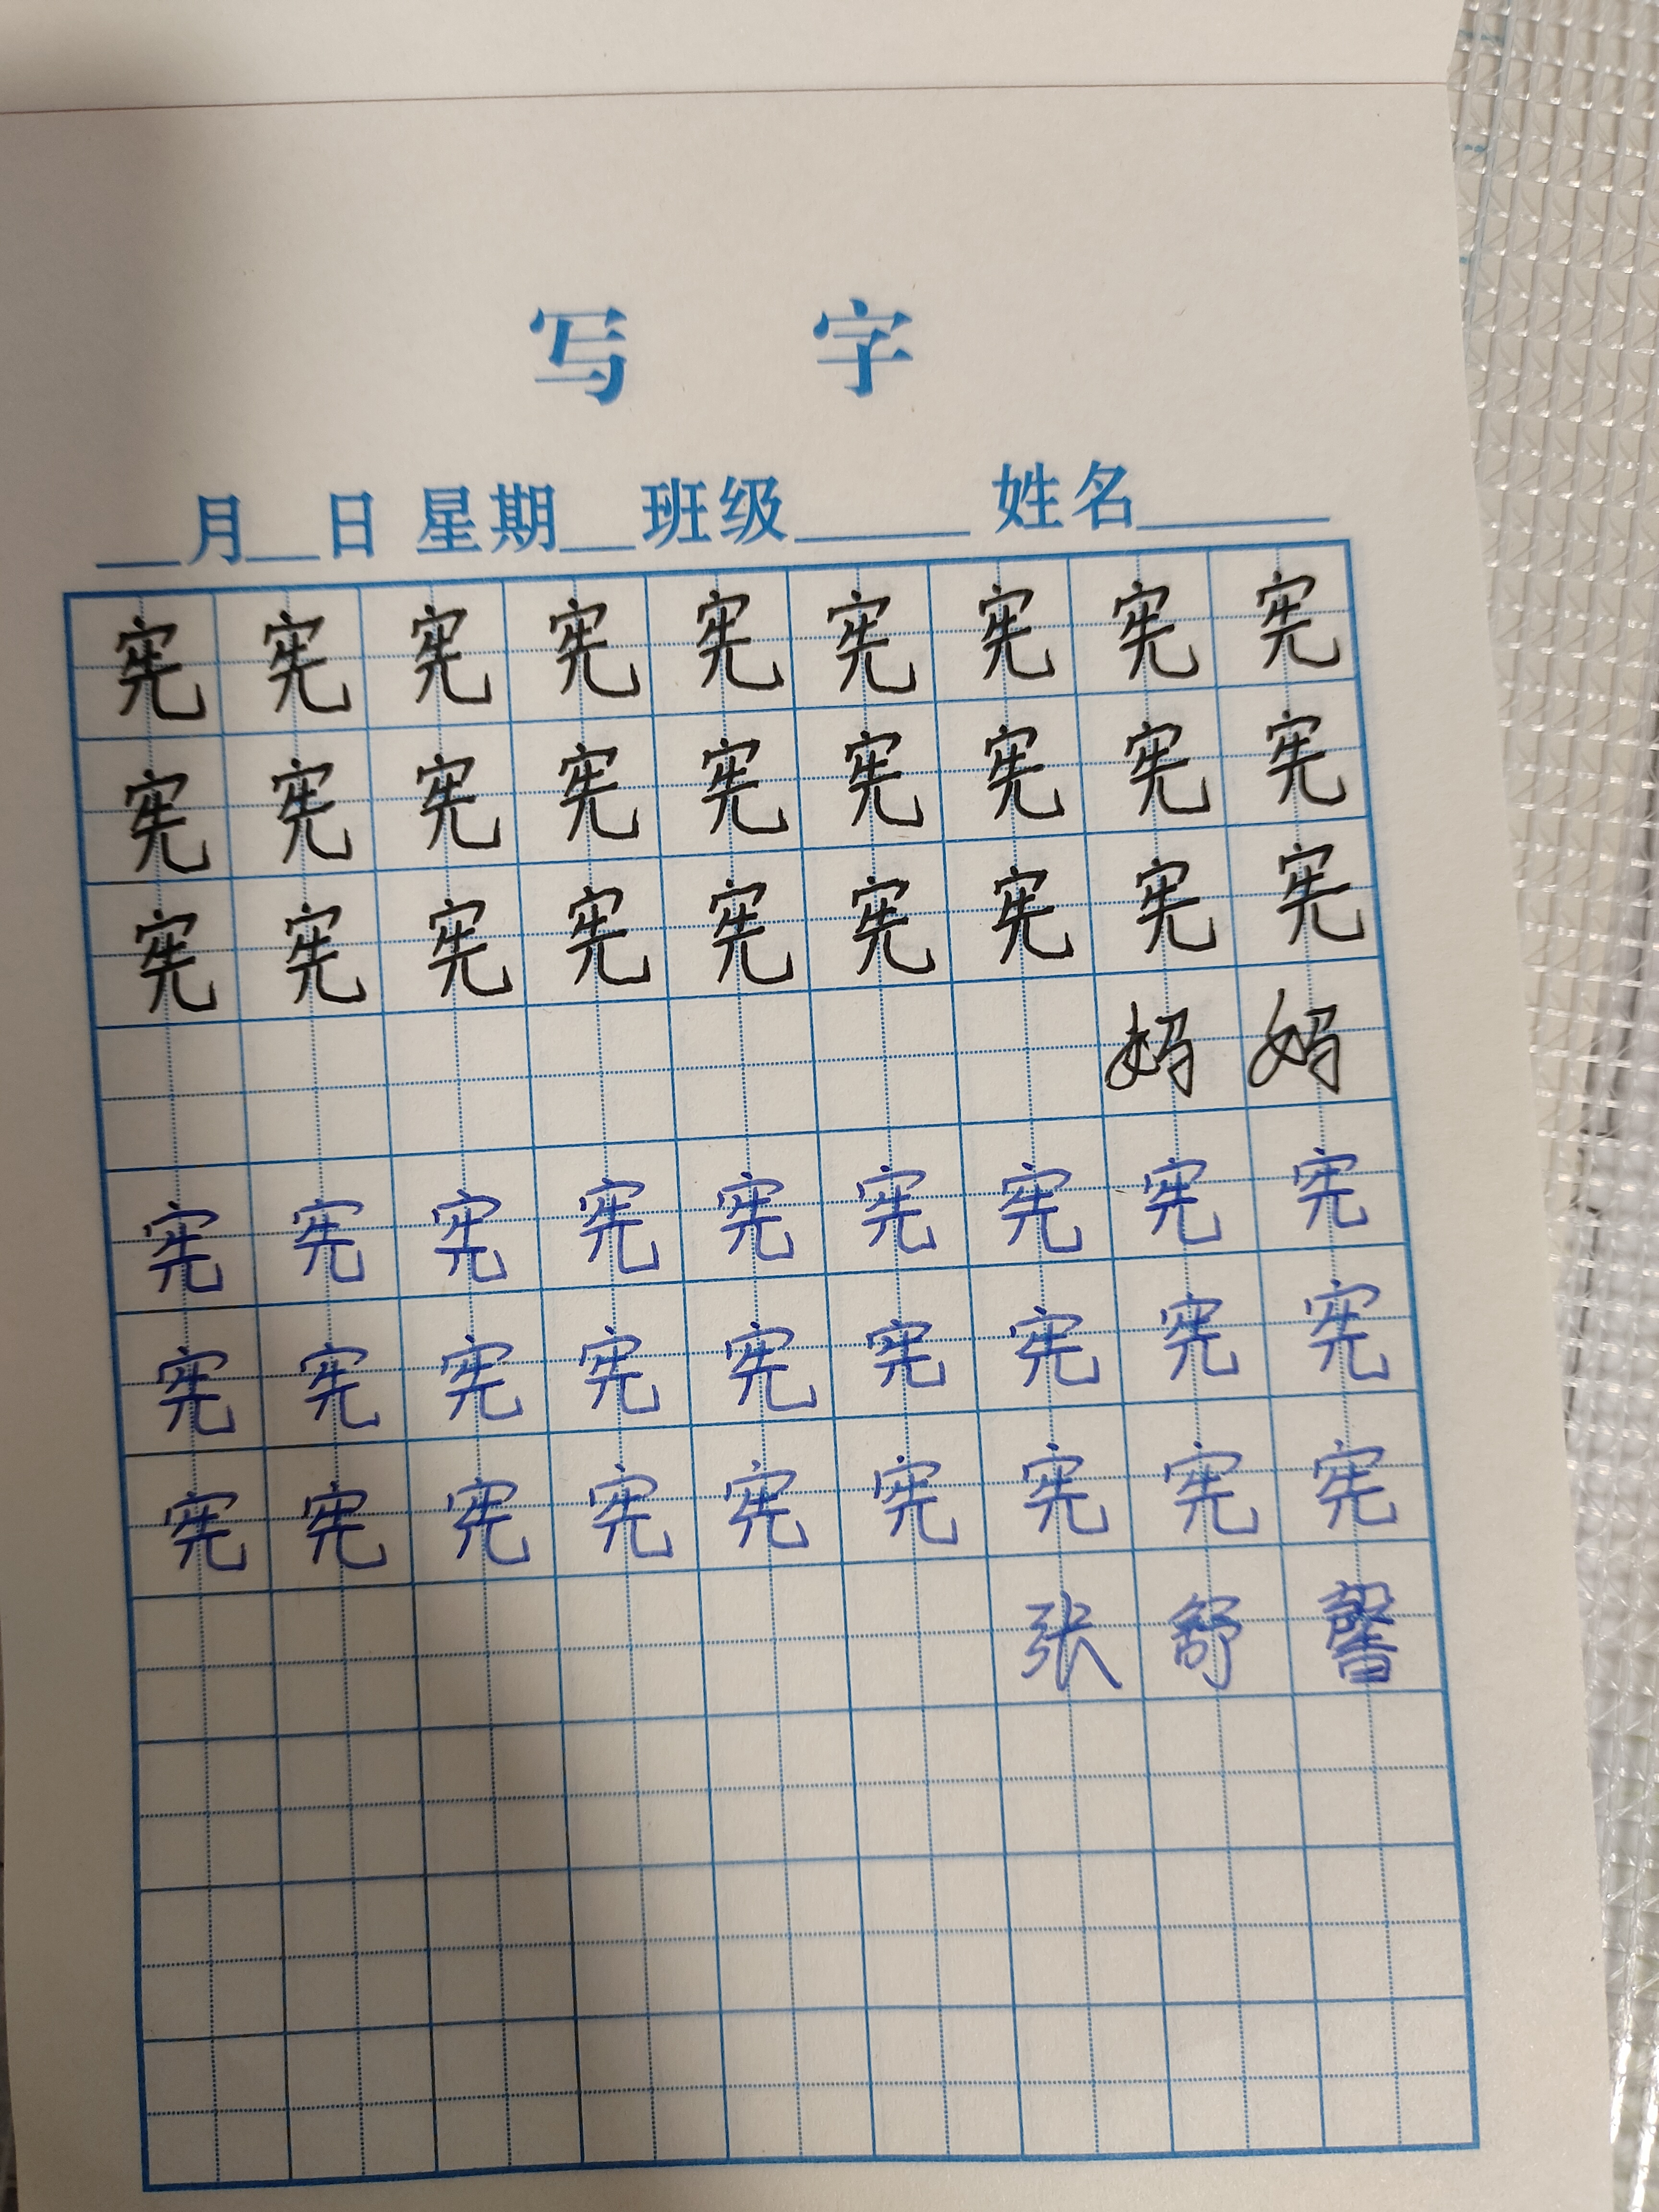 写 字
__月__日 星期__班级____ 姓名____
宪 宪 宪 宪 宪 宪 宪 宪 宪
宪 宪 宪 宪 宪 宪 宪 宪 宪
宪 宪 宪 宪 宪 宪 宪 宪 宪
妈 妈
宪 宪 宪 宪 宪 宪 宪 宪 宪
宪 宪 宪 宪 宪 宪 宪 宪 宪
宪 宪 宪 宪 宪 宪 宪 宪 宪
张 舒 馨